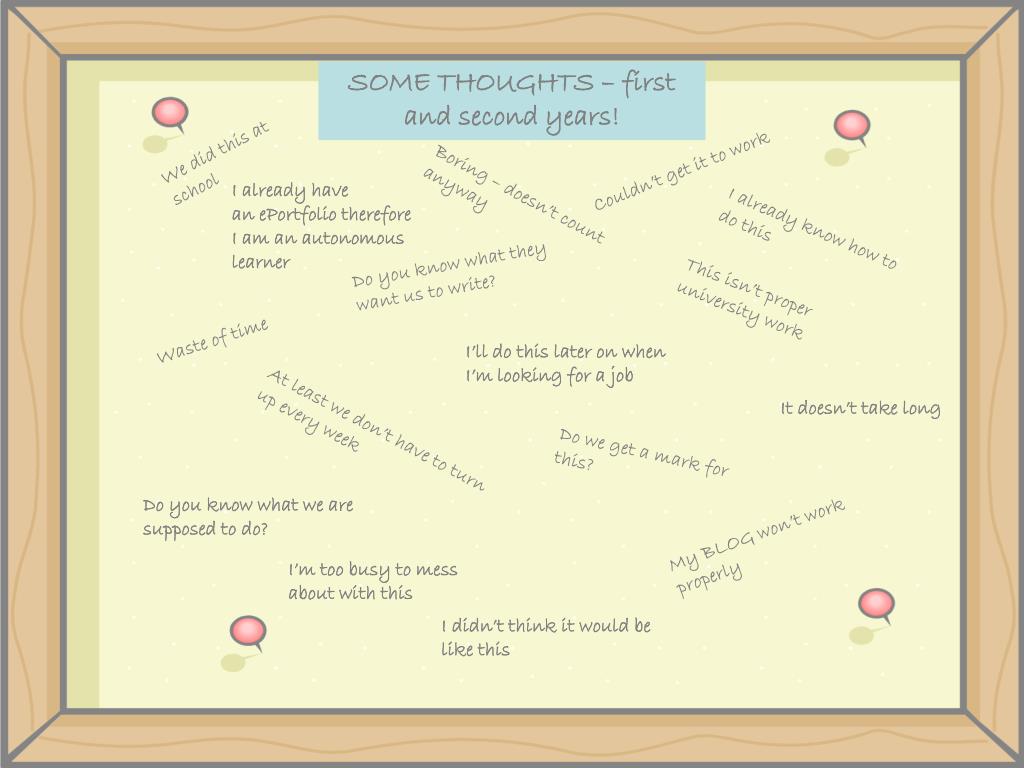 SOME THOUGHTS – first
and second years!
We did this at
school
I already have
an ePortfolio therefore
I am an autonomous
learner
Boring – doesn't count
anyway
Couldn't get it to work
I already know how to
do this
Do you know what they
want us to write?
This isn't proper
university work
Waste of time
I'll do this later on when
I'm looking for a job
At least we don't have to turn
up every week
It doesn't take long
Do we get a mark for
this?
Do you know what we are
supposed to do?
My BLOG won't work
properly
I'm too busy to mess
about with this
I didn't think it would be
like this